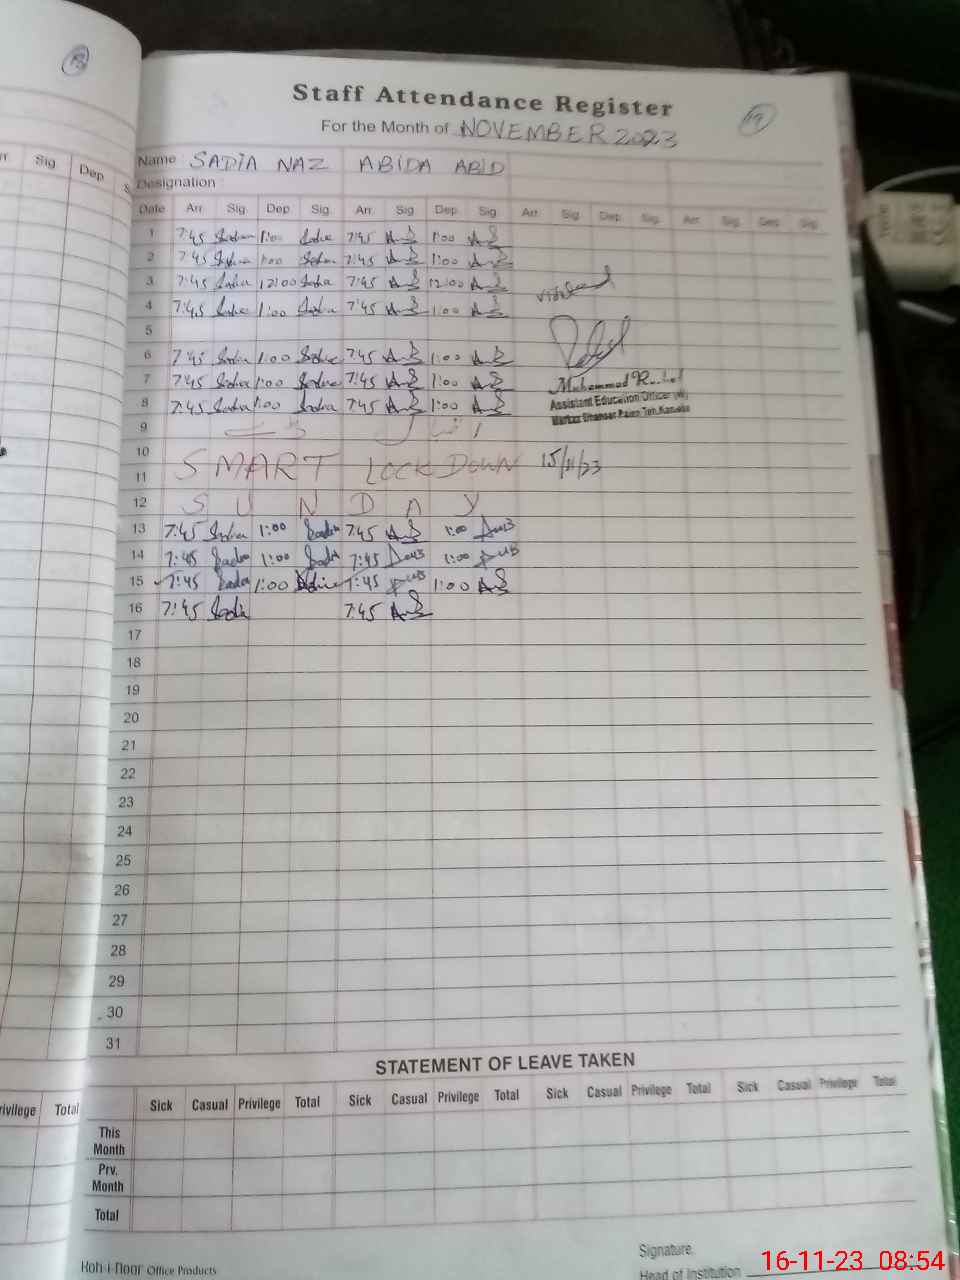 Staff Attendance Register
For the Month of NOVEMBER 2023
Name SADIA NAZ ABIDA ABID
Designation
Date Arr. Sig. Dep. Sig. Arr. Sig. Dep. Sig. Arr. Sig. Dep. Sig. Arr. Sig. Dep. Sig.
1 7:45 Sadia 1:00 Sadia 7:45 1:00
2 7:45 Sadia 1:00 Sadia 7:45 1:00
3 7:45 Sadia 12:00 Sadia 7:45 12:00
4 7:45 Sadia 1:00 Sadia 7:45 1:00
5
6 7:45 Sadia 1:00 Sadia 7:45 1:00
7 7:45 Sadia 1:00 Sadia 7:45 1:00
8 7:45 Sadia 1:00 Sadia 7:45 1:00
Assistant Education Officer (W)
9
10
11 SMART LOCK DOWN 15/11/23
12 SUNDAY
13 7:45 Sadia 1:00 Sadia 7:45 1:00
14 7:45 Sadia 1:00 Sadia 7:45 1:00
15 7:45 Sadia 1:00 7:45 1:00
16 7:45 Sadia 7:45
17
18
19
20
21
22
23
24
25
26
27
28
29
30
31
STATEMENT OF LEAVE TAKEN
Sick Casual Privilege Total Sick Casual Privilege Total Sick Casual Privilege Total Sick Casual Privilege Total
This Month
Prv. Month
Total
Koh-i-noor Office Products
Signature.
Head of Institution
16-11-23 08:54
Sig Dep
Total